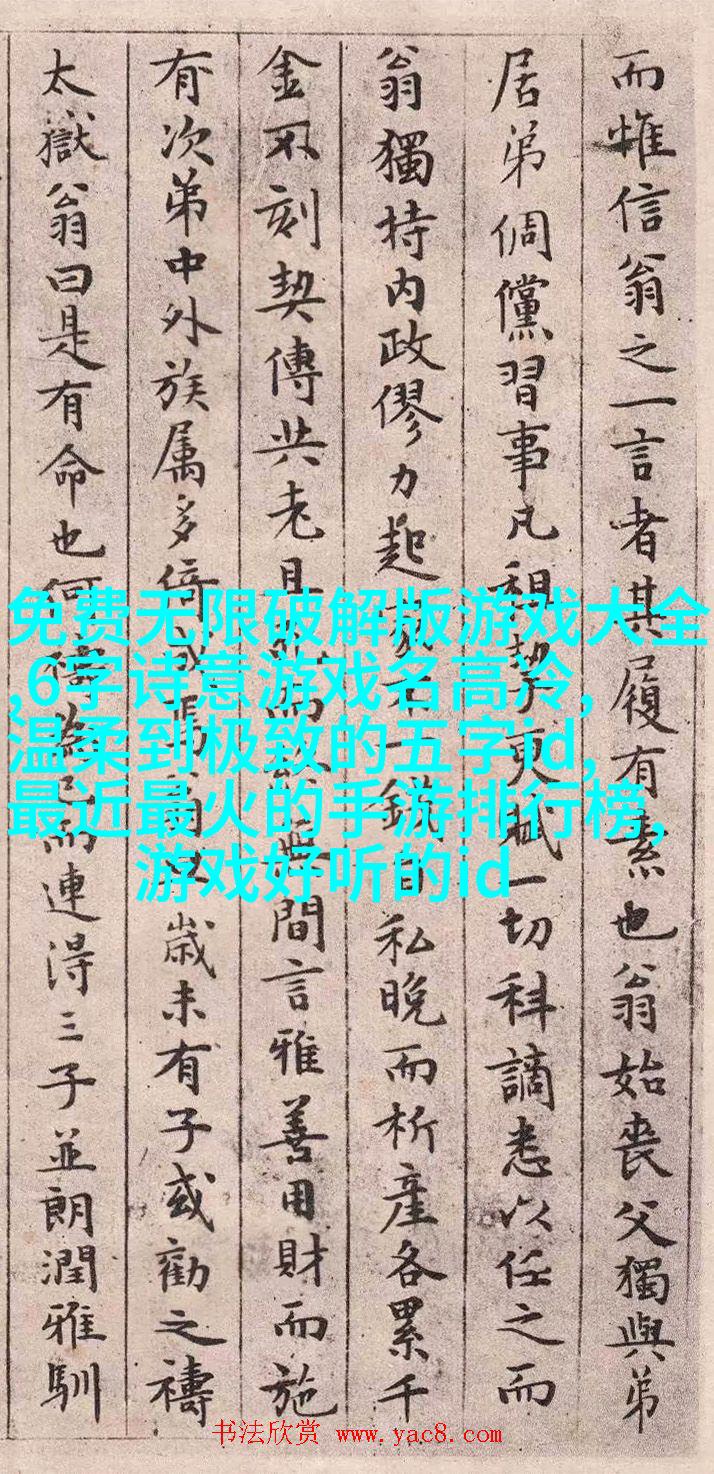 而惟信翁之一言者其履有素也翁始喪父獨與弟
居弟倜儻習事凡租挈更賦一切科謫悉以任之而
翁獨持内政僇力起不一錢自私晚而析產各累千
金不刻契傳共老且而無間言雅善用財而施
有次弟中外族属多倚焉歲未有子或勸之禱
太嶽翁曰是有命也何禱為已而連得三子並朗潤雅馴
免费无限破解版游戏大全
,6字诗意游戏名高冷,
温柔到极致的五字id,
最近最火的手游排行榜,
游戏好听的id
书法欣赏 www.yac8.com